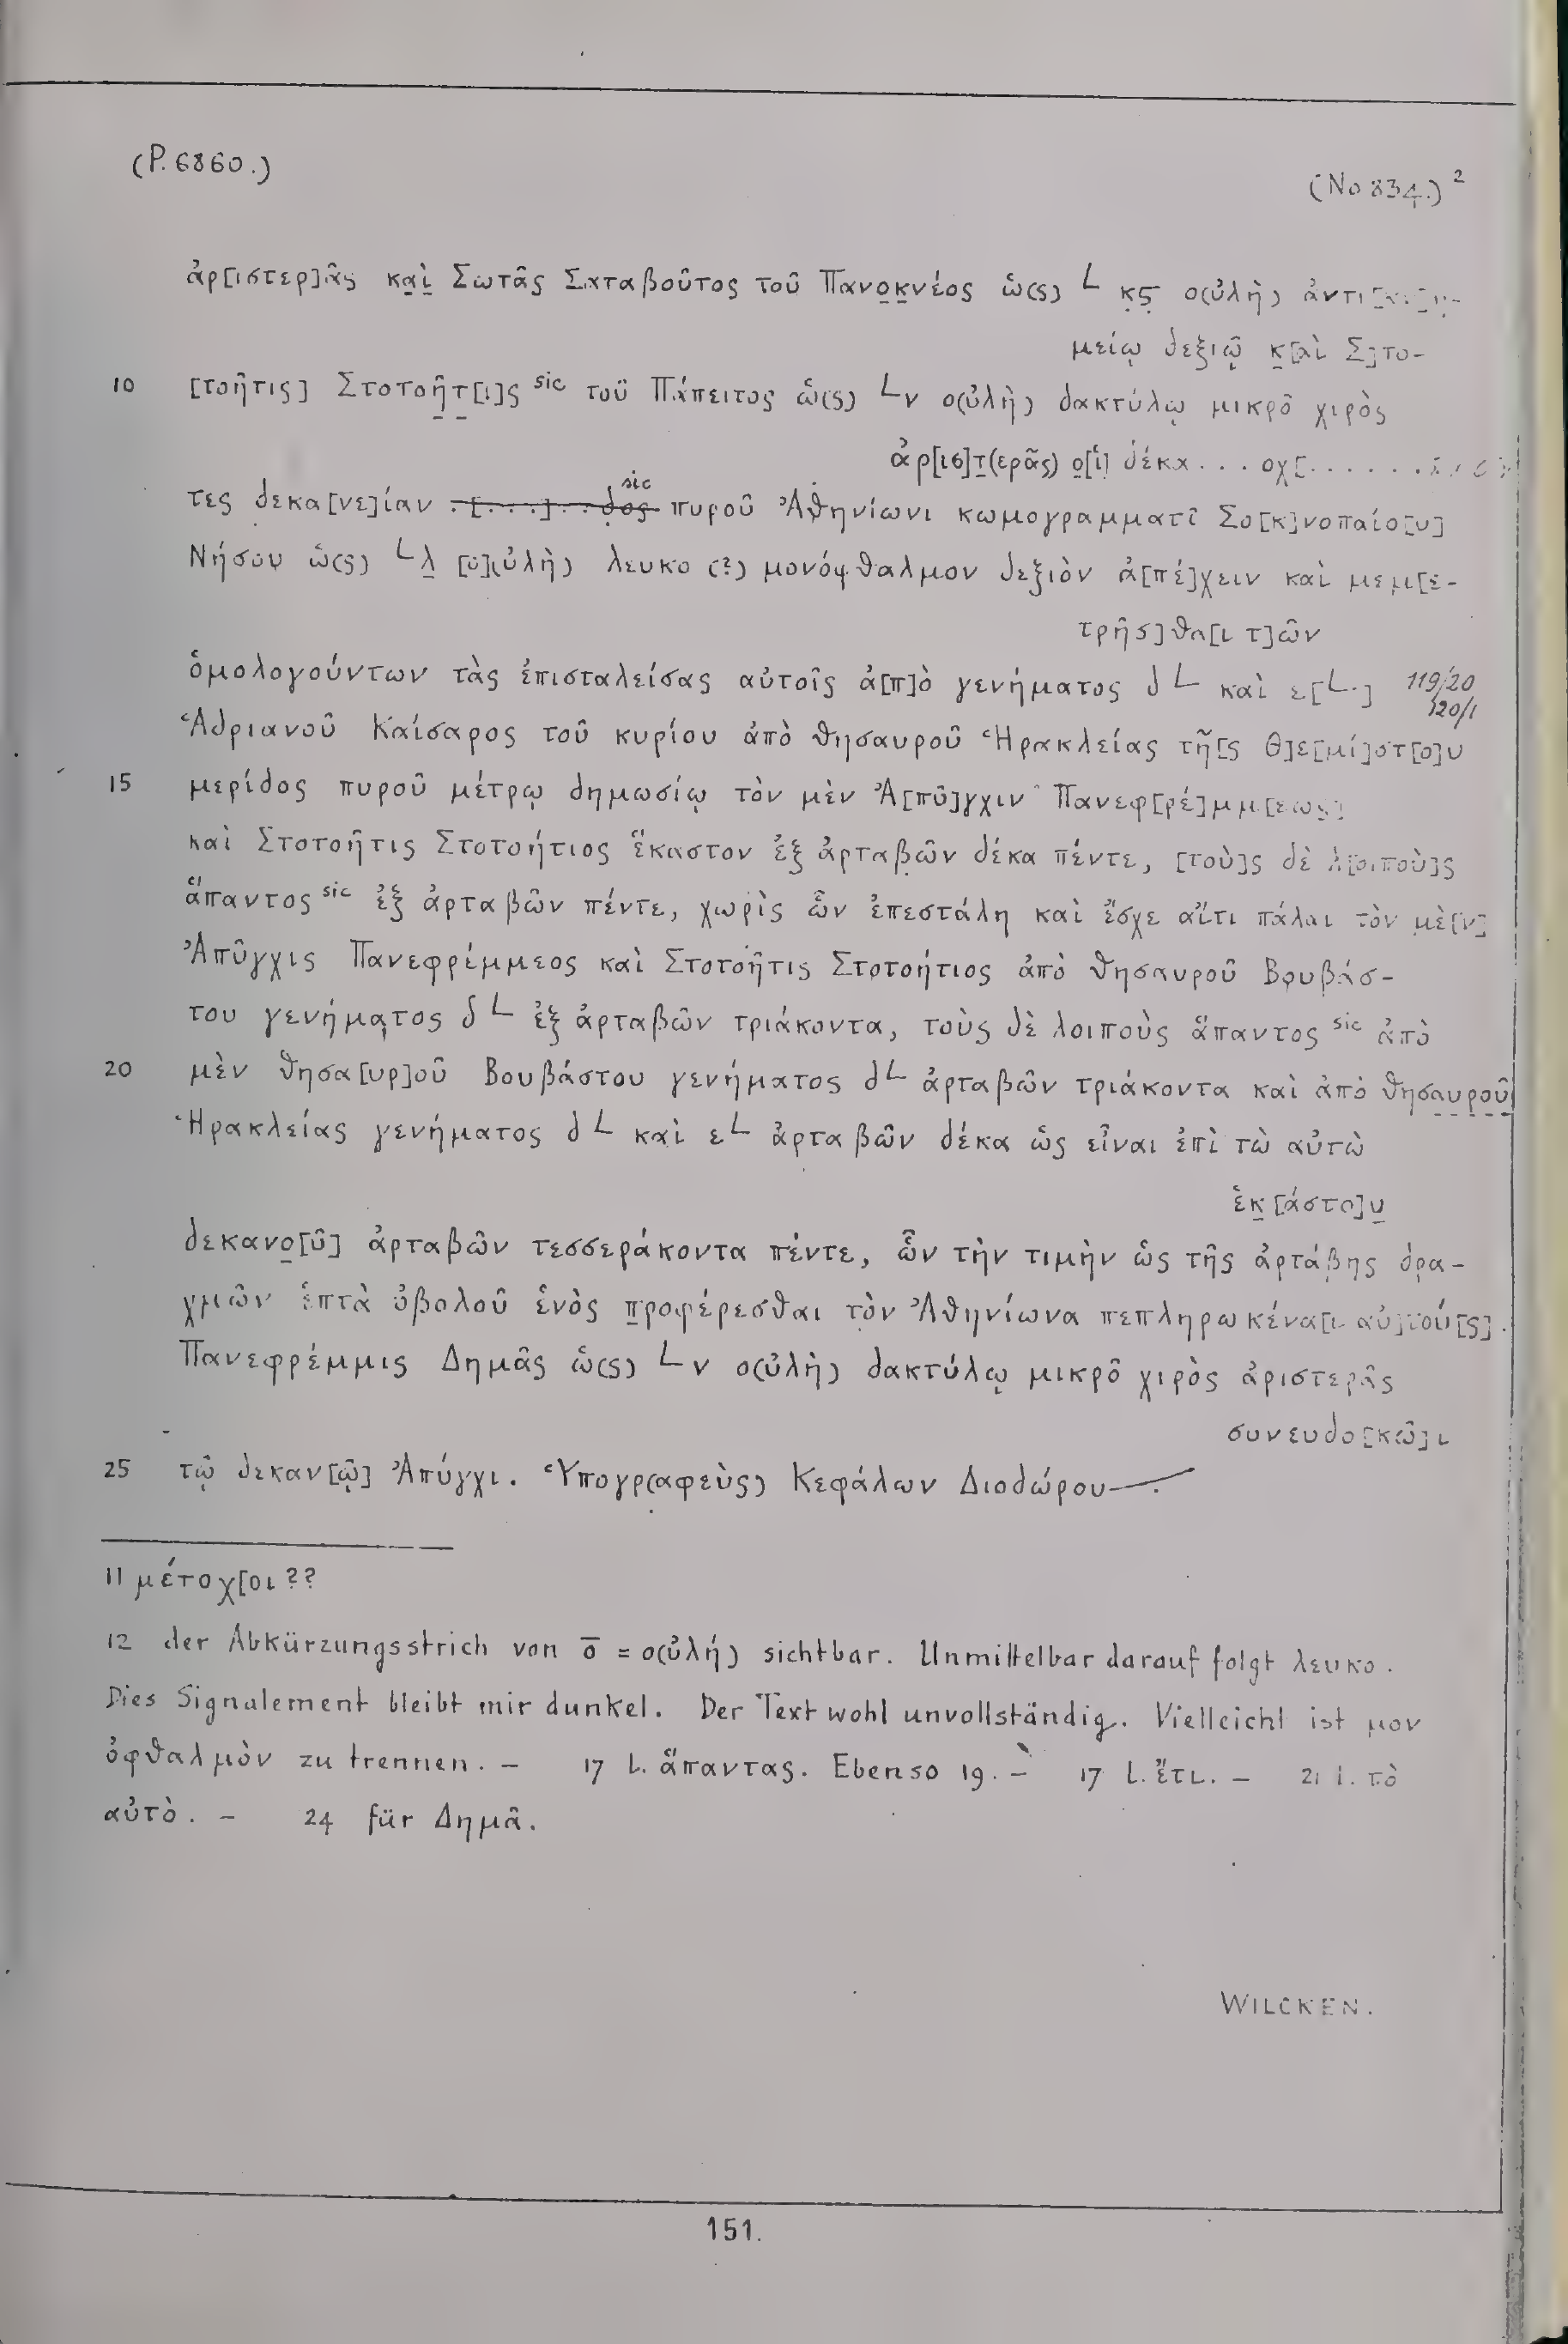 (P. 6860.)
(No 834.) 2
ἀρ[ιστερ]ᾶς καὶ Σωτᾶς Σαταβοῦτος τοῦ Πανοκνέος ὡ(ς) L κϛ ο(ὐλὴ) ἀντι
μείῳ δεξιῷ κ[αὶ Σ]το-
10 [τοῆτις] Στοτοήτ[ι]ς sic τοῦ Πάπειτος ὡ(ς) L ν ο(ὐλὴ) δακτύλῳ μικρῶ χιρὸς
ἀρ[ισ]τ(ερᾶς) ο[ἱ] δέκα . . . οχ[. . . . . . .
τες δεκα[νε]ίαν . [. . .] . . δος sic πυροῦ Ἀθηνίωνι κωμογραμματῖ Σο[κ]νοπαίο[υ]
Νήσου ὡ(ς) L λ [ο](ὐλὴ) λευκο (?) μονόφθαλμον δεξιὸν ἀ[πέ]χειν καὶ μεμ[ε-
τρῆσ]θα[ι τ]ῶν
ὁμολογούντων τὰς ἐπισταλείσας αὐτοῖς ἀ[π]ὸ γενήματος δ L καὶ ε[L.] 119/20
120/1
Ἁδριανοῦ Καίσαρος τοῦ κυρίου ἀπὸ θησαυροῦ Ἡρακλείας τῆ[ς Θ]ε[μί]στ[ο]υ
15 μερίδος πυροῦ μέτρῳ δημωσίῳ τὸν μὲν Ἀ[πῦ]γχιν Πανεφ[ρέ]μμ[εως]
καὶ Στοτοῆτις Στοτοήτιος ἕκαστον ἐξ ἀρταβῶν δέκα πέντε, [τοὺ]ς δὲ λ[οιποὺ]ς
ἅπαντος sic ἐξ ἀρταβῶν πέντε, χωρὶς ὧν ἐπεστάλη καὶ ἔσχε αἴτι πάλαι τὸν μὲ[ν]
Ἀπῦγχις Πανεφρέμμεος καὶ Στοτοῆτις Στοτοήτιος ἀπὸ θησαυροῦ Βουβάσ-
του γενήματος δ L ἐξ ἀρταβῶν τριάκοντα, τοὺς δὲ λοιποὺς ἅπαντος sic ἀπὸ
20 μὲν θησα[υρ]οῦ Βουβάστου γενήματος δ L ἀρταβῶν τριάκοντα καὶ ἀπὸ θησαυροῦ
Ἡρακλείας γενήματος δ L καὶ ε L ἀρταβῶν δέκα ὡς εἶναι ἐπὶ τὼ αὐτὼ
ἑκ[άστο]υ
δεκανο[ῦ] ἀρταβῶν τεσσεράκοντα πέντε, ὧν τὴν τιμὴν ὡς τῆς ἀρτάβης δρα-
χμῶν ἑπτὰ ὀβολοῦ ἑνὸς προφέρεσθαι τὸν Ἀθηνίωνα πεπληρωκένα[ι αὐ]τού[ς].
Πανεφρέμμις Δημᾶς ὡ(ς) L ν ο(ὐλὴ) δακτύλῳ μικρῶ χιρὸς ἀριστερᾶς
συνευδο[κῶ]ι
25 τῷ δεκαν[ῷ] Ἀπύγχι. Ὑπογρ(αφεὺς) Κεφάλων Διοδώρου
11 μέτοχ[οι ??
12 der Abkürzungsstrich von ō = ο(ὐλή) sichtbar. Unmittelbar darauf folgt λευκο.
Dies Signalement bleibt mir dunkel. Der Text wohl unvollständig. Vielleicht ist μον
ὀφθαλμὸν zu trennen. – 17 l. ἅπαντας. Ebenso 19. – 17 l. ἔτι. – 21 l. τὸ
αὐτὸ. – 24 für Δημᾶ.
WILCKEN.
151.